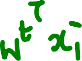 w^{t^{T}} x_i